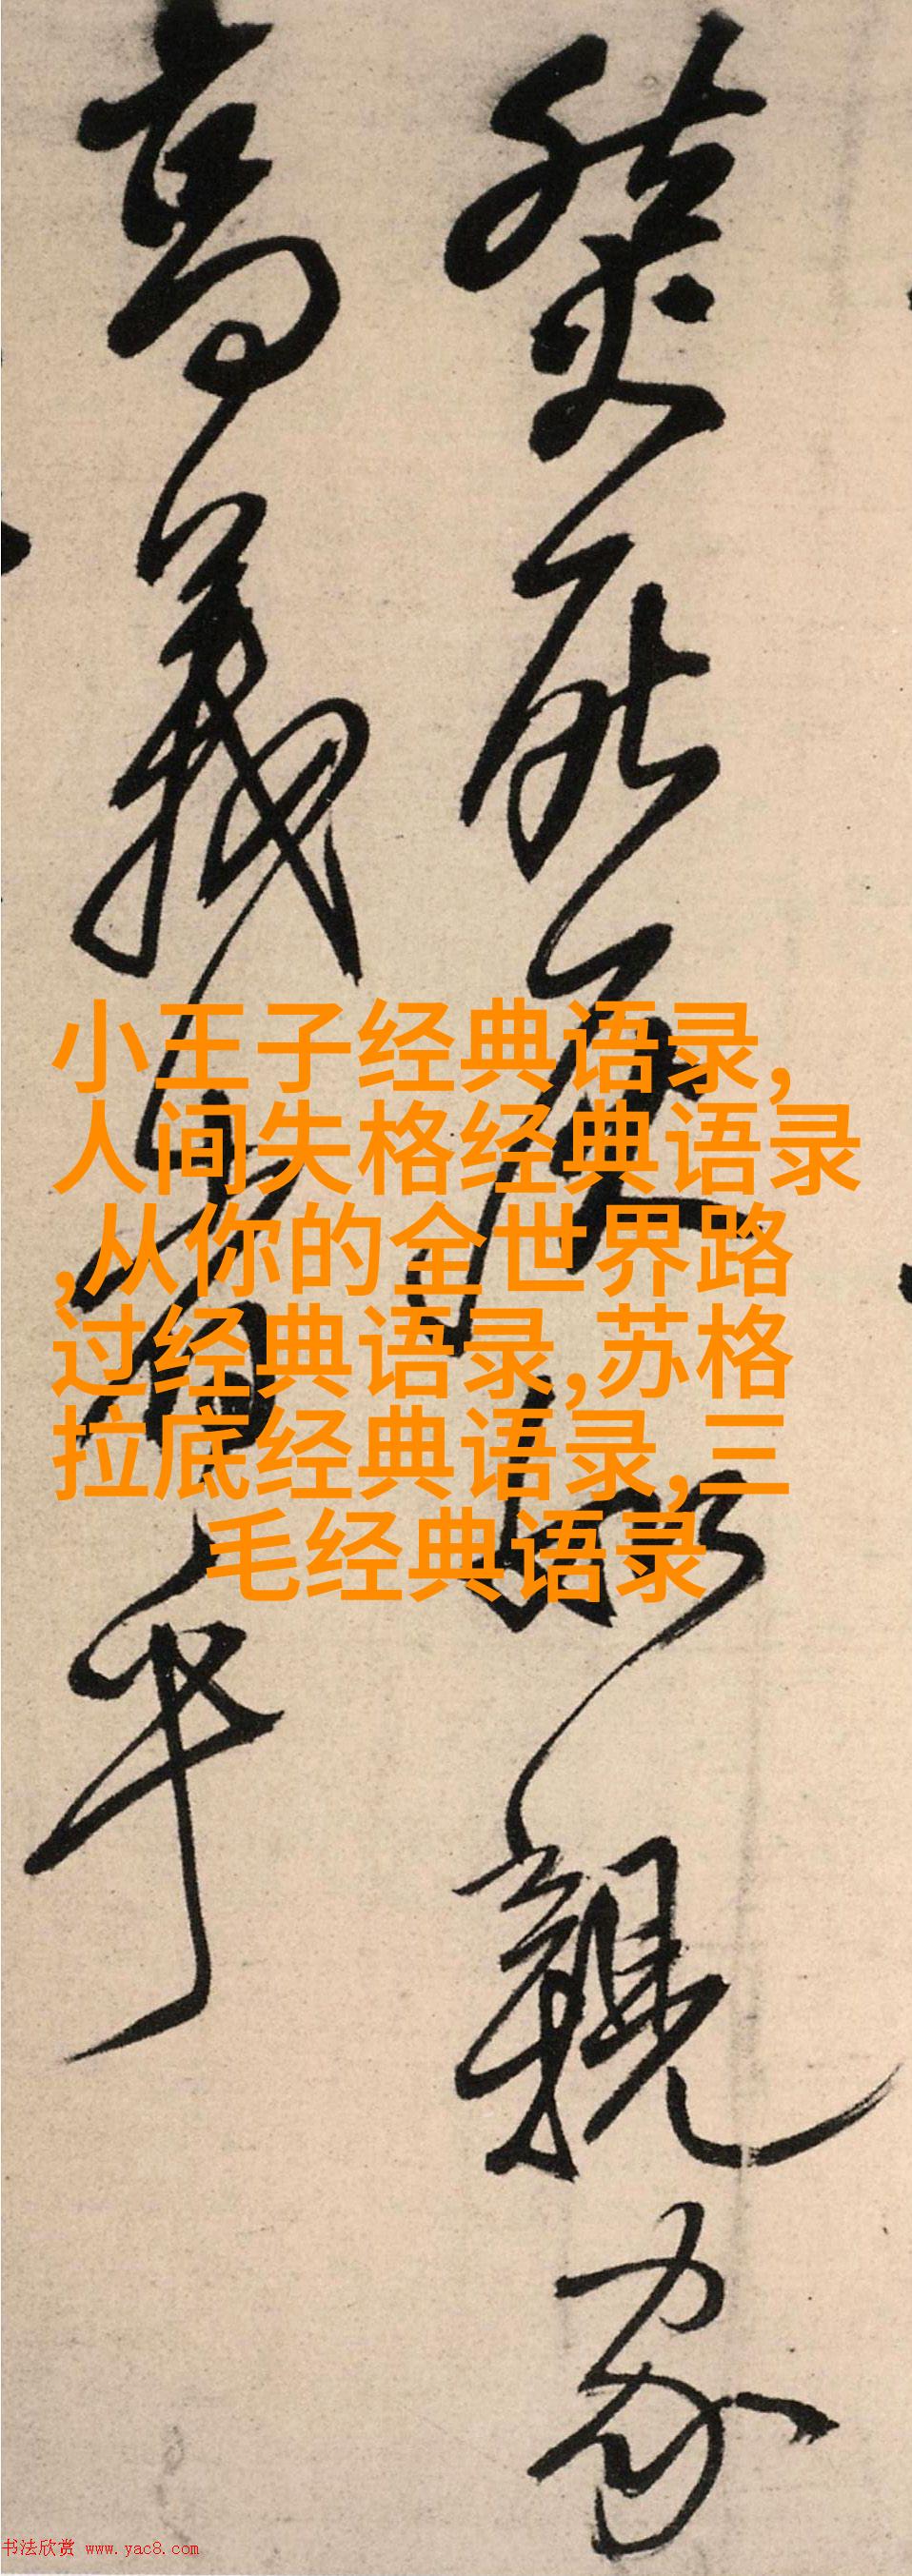 親
高義
小王子经典语录,
人间失格经典语录
,从你的全世界路
过经典语录,苏格
拉底经典语录,三
毛经典语录
书法欣赏 www.yac8.com